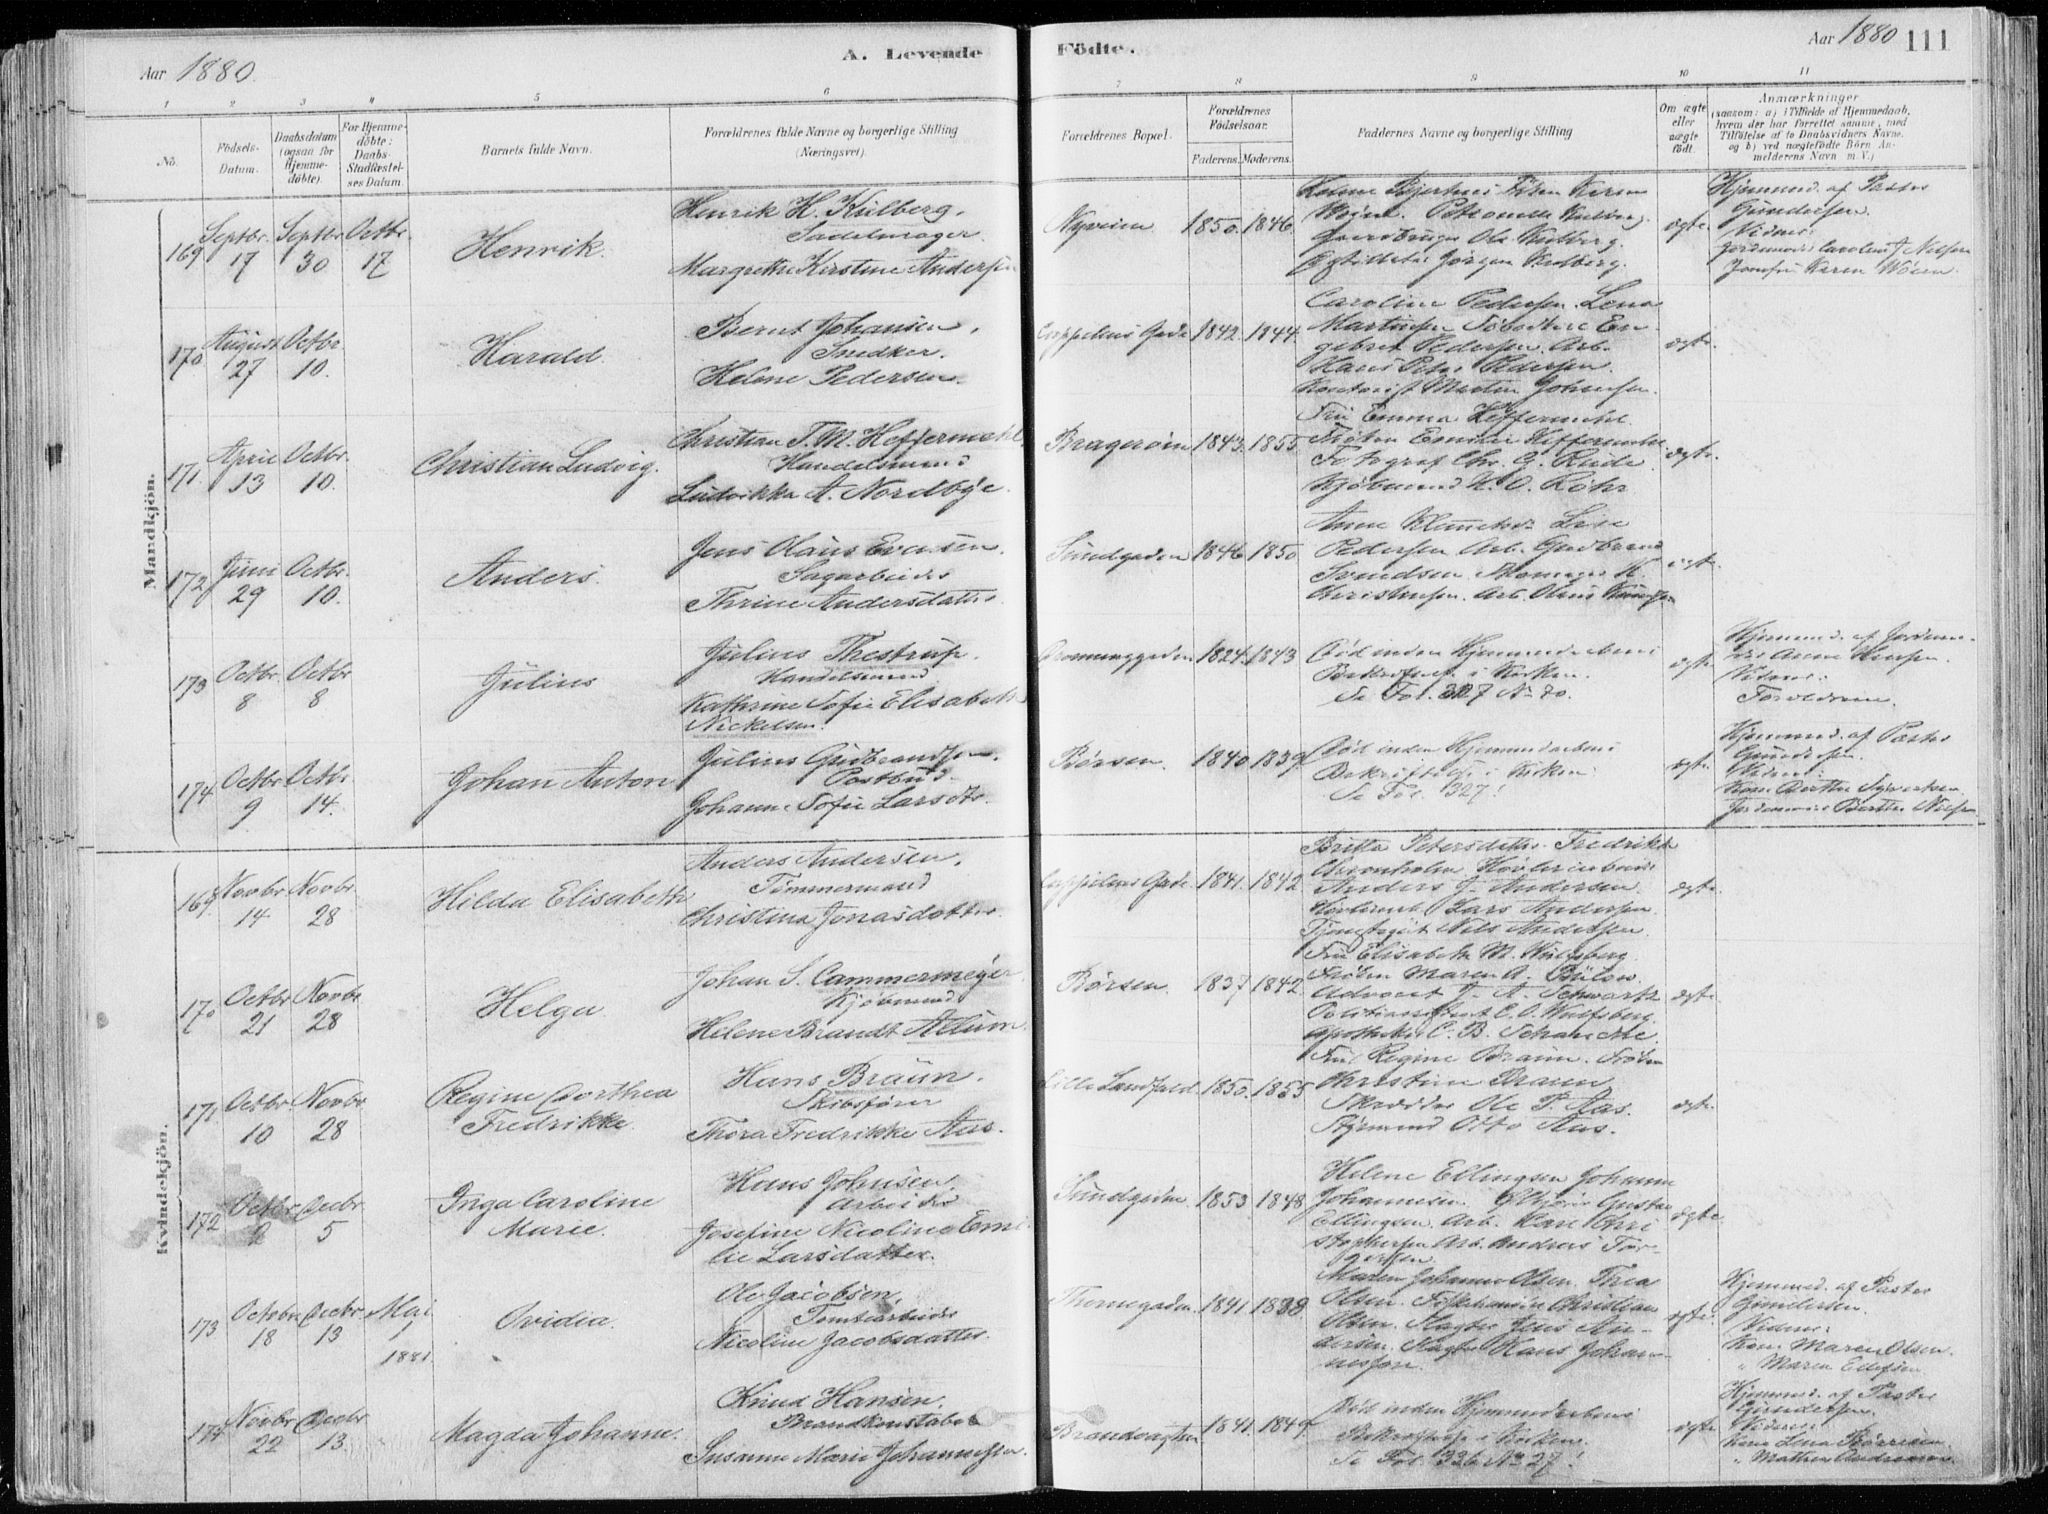 Aar 1880.
A. Levende
Födte.
Aar 1880 111
1 2 3 4 5 6 7 8 9 10 11
No.
Födsels-
Datum.
Daabsdatum
(ogsaa for
Hjemme-
döbte).
For Hjemme-
döbte:
Daabs-
Stadfæstel-
ses Datum.
Barnets fulde Navn.
Forældrenes fulde Navne og borgerlige Stilling
(Næringsvei).
Forældrenes Bopæl.
Forældrenes
Födselsaar.
Faderens. Moderens.
Faddernes Navne og borgerlige Stilling
Om ægte
eller
uægte
födt.
Anmærkninger
(saasom: a) i Tilfælde af Hjemmedaab,
hvem der har forrettet samme, med
Tilföielse af to Daabsvidners Navne,
og b) ved uægtefödte Börn An-
melderens Navn m. V.)
Mandkjön.
169
Septbr. Septbr. Octbr.
17 30 17
Henrik.
Henrik H. Külberg.
Sadelmager
Margrethe Kirstine Andersen
Nyveien 1850. 1846.
ægte.
Hjemmed. af Pastor
Gundersen.
Vidner:
Jomfru Karen
170
August Octbr.
27 10.
Harald
Bernt Johansen,
Snedker.
Helene Pedersen.
Cappelens Gade 1842. 1844.
Caroline Pedersen. Lena
gebret Pedersen. Arb.
Hans Peter Pedersen.
Kontorist Martin Johnsen.
ægte.
171
April Octbr.
13 10.
Christian Ludvig.
Christian T. M. Heffermehl
Handelsmand
Ludvikka A. Nordbye.
Bragerøen 1843. 1855
Fru Emma Heffermehl.
Frøken Emilie Heffermehl
Fotograf Chr. G. Rude
Kjøbmand H. O. Röhr
ægte.
172
Juni Octbr.
29 10.
Anders.
Jens Olaus Evensen.
Sagarbeider
Thrine Andersdatter.
Sundgaden 1846 1850
Pedersen. Arb. Gudbrand
Svendsen.
Christensen. Arb. Olaus
ægte.
173
Octbr. Octbr
8 8
Julius
Julius Thestrup.
Handelsmand
Kathrine Sofie Elisabeth
Nickelsen.
Dronninggaden 1824. 1843
Død inden Hjemmedaabens
Bekræftelse i Kirken.
Se Fol. 327 No 70.
ægte
Hjemmed. af Jordmo-
Vidner:
Forældrene.
174
Octbr Octbr
9 14.
Johan Anton
Julius Gudbrandsen.
Postbud.
Johanne Sofie Larsdtr.
Børsen. 1840 1839.
Død inden Hjemmedaabens
Bekræftelse i Kirken
Se Fol. 327!
ægte.
Hjemmed. af Pastor
Gundersen.
Vidner:
Kone Berthe Syvertsen.
Jordemoder Berthe Nielsen
Kvindekjön.
169
Novbr Novbr.
14 28
Hilda Elisabeth
Anders Andersen.
Tömmermand
Christina Jonasdatter.
Cappelens Gade. 1841. 1842
Britta Petersdatter. Fredrikke
Anders J. Andersen.
Lars Andersen.
Nils Andersen.
ægte.
170
Octbr Novbr.
21 28
Helga
Johan S. Cammermeyer
Kjøbmand
Helene Brandt Allum.
Børsen. 1837 1842
Fru Elisabeth M. Wulfsberg.
Frøken Maren A. Bülow.
Advocat J. A. Schwartz
C. O. Wulfsberg.
Apotheker C. B.
ægte.
171
Octbr Novbr
10 28
Regine Dorthea
Fredrikke
Hans Braün.
Skibsfører
Thora Fredrikke Aas.
Lille Landfald 1850. 1855
Fru Regine Braün. Frøken
Christine Braun.
Skrædder Ole P. Aas.
Styrmand Otto Aas.
ægte.
172
Octbr Decbr
2 5
Inga Caroline
Marie.
Hans Johnsen.
Arbeider
Josefine Nicoline Emi-
lie Larsdatter.
Sundgaden 1853 1848
Helene Ellingsen Johanne
Johannesen. Gustav
Ellingsen. Arb. Karl Chri
stophersen Arb. Andreas Tor-
gersen.
ægte
173
Octobr Decbr Mai
18 13 1
1881
Ovidia.
Ole Jacobsen.
Tomtearbeider
Nicoline Jacobsdatter.
Thornegaden. 1841. 1838
Maren Johanne Olsen. Thea
Olsen. Christian
Olsen. Slagter Jens An-
dersen. Slagter Hans Johan-
nessen.
ægte.
Hjemmed. af Pastor
Gundersen.
Vidner:
Kone Maren Olsen.
" Maren Ellefsen
174
Novbr Decbr
22 13.
Magda Johanne.
Knud Hansen.
Brandkonstabel
Susanne Marie Johannessen.
Brandvagten 1841. 1849.
Død inden Hjemmedaabens
Bekræftelse i Kirken.
Se Fol. 336 No 27!
ægte.
Hjemmed. af Pastor
Gundersen.
Vidner:
Kone Lena
" Mathea Andreasen.